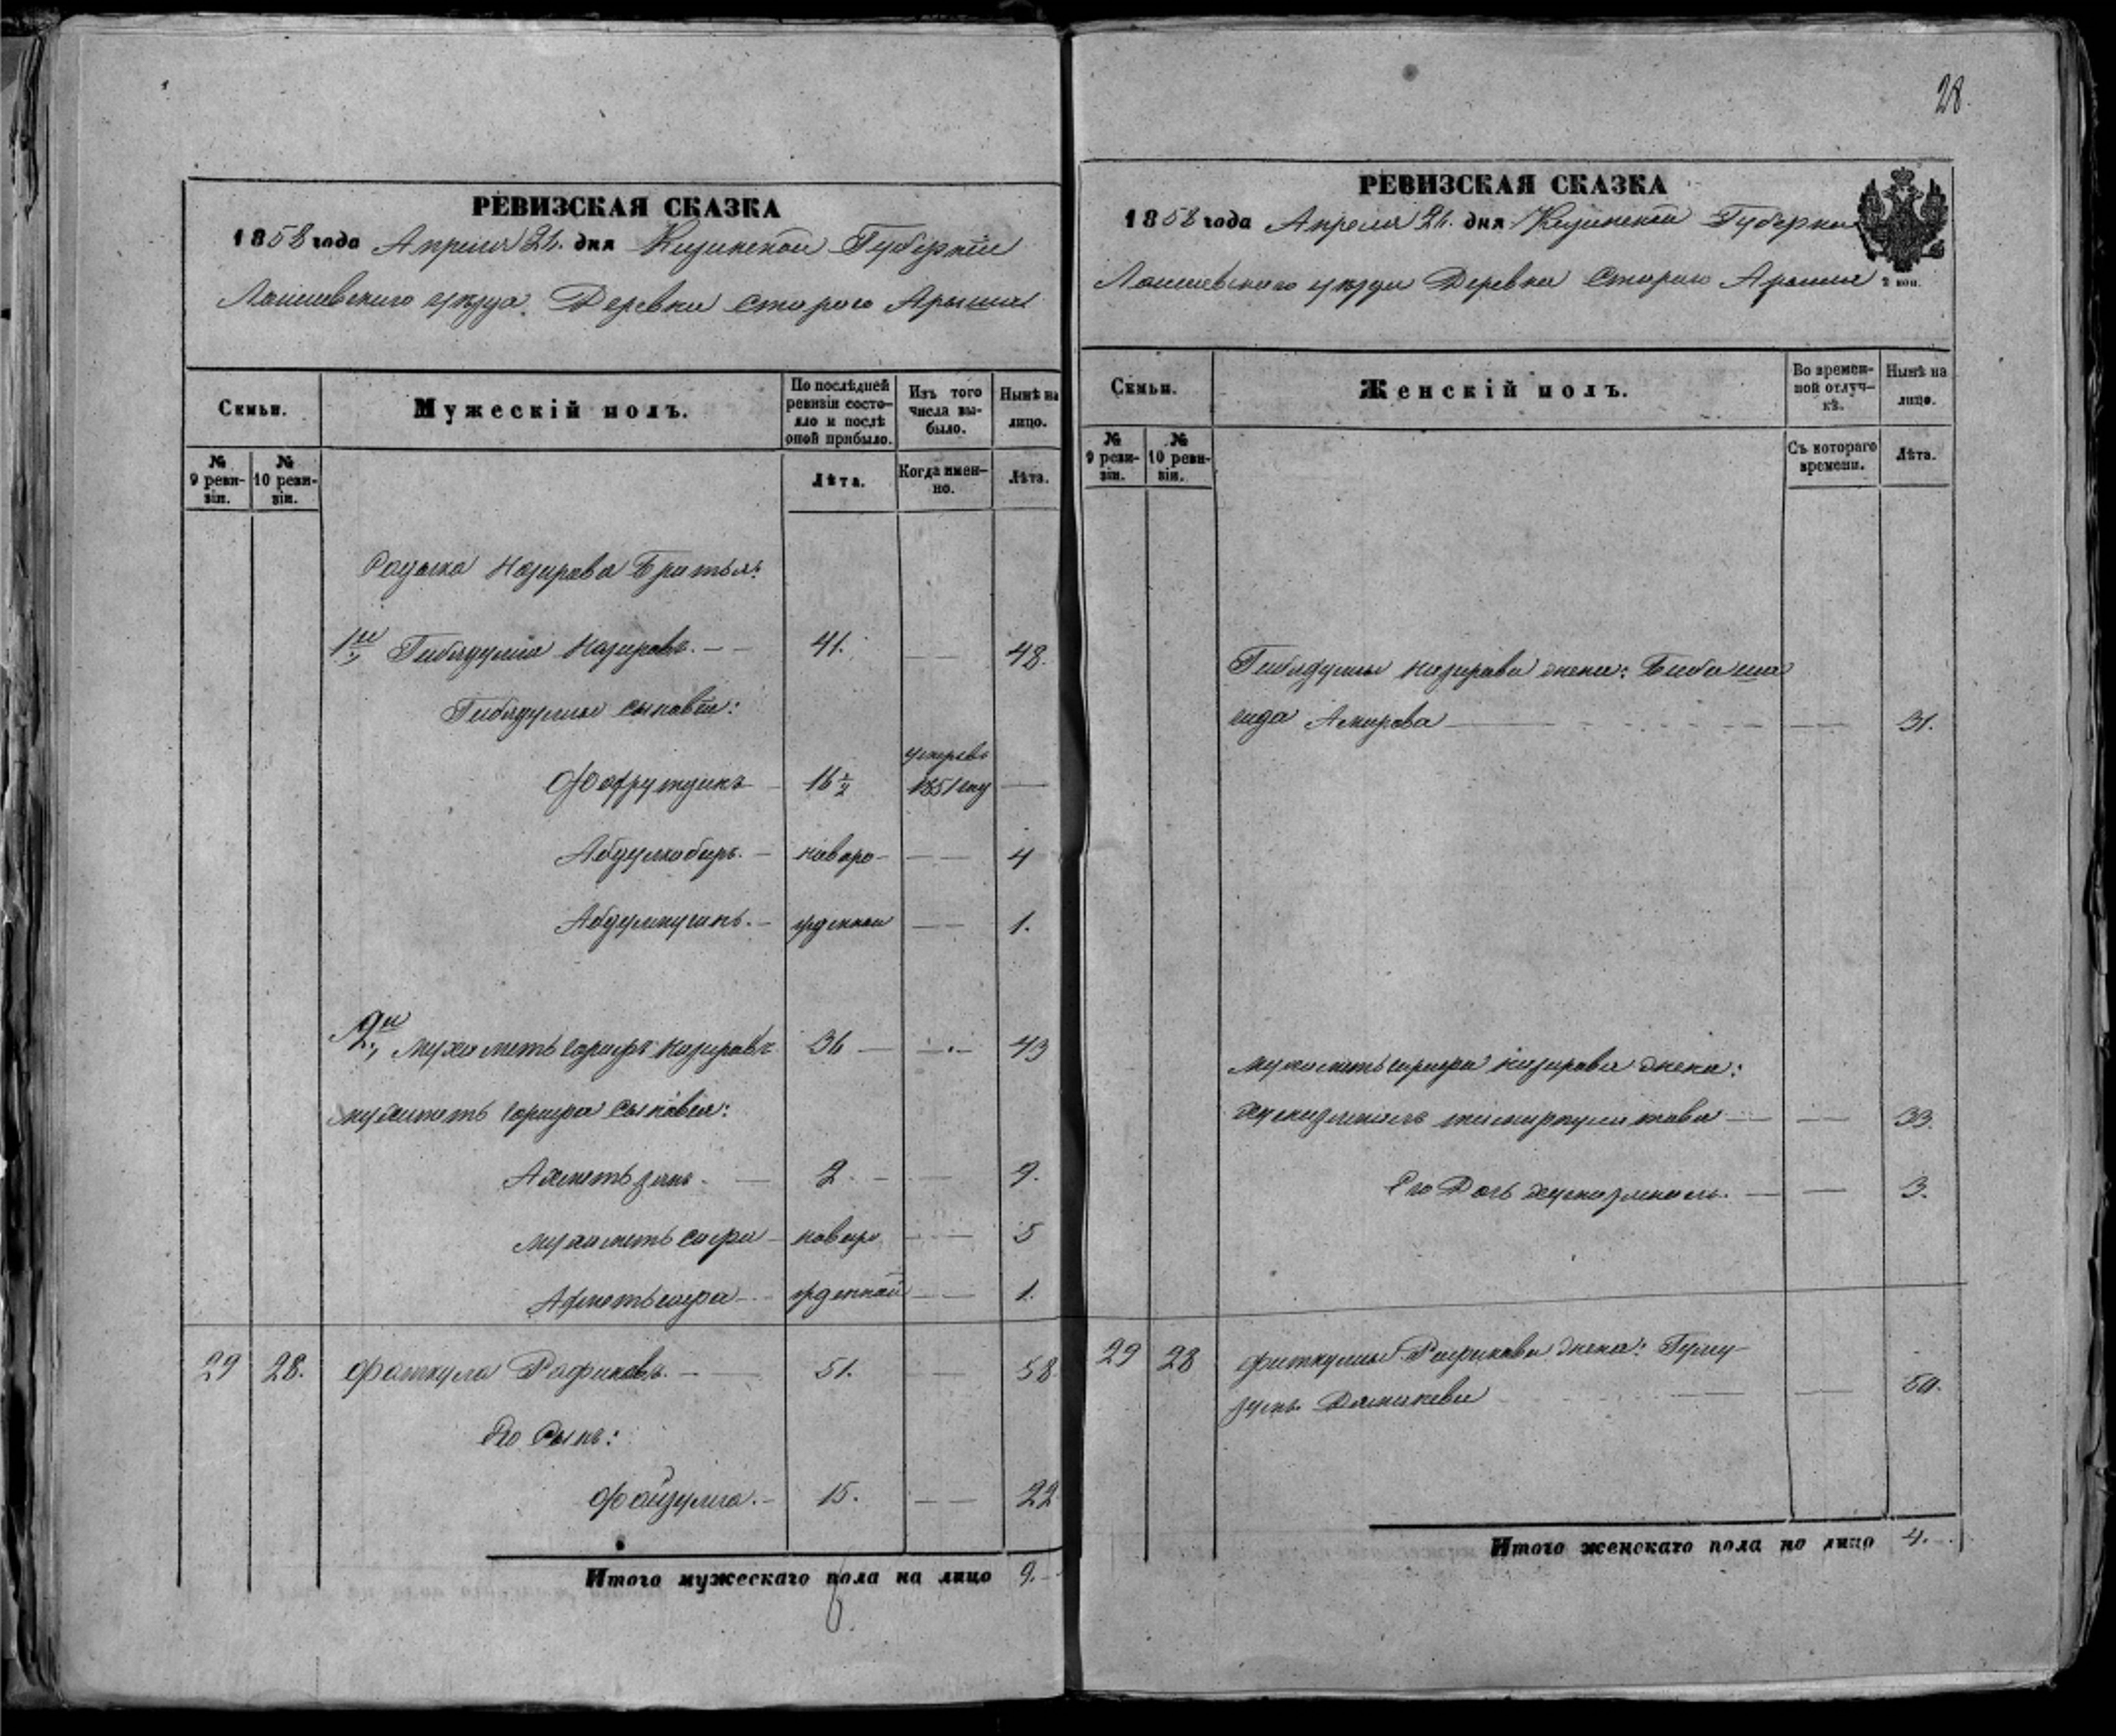 28.
РЕВИЗСКАЯ СКАЗКА
1858 года Апреля 26. дня Казанской Губернiи
Лаишевского уѣзда. Деревни Старого Арыша
Семьи.
Мужескій полъ.
По послѣдней ревизіи состояло и послѣ оной прибыло.
Изъ того числа выбыло.
Нынѣ на лицо.
№ 9 ревизіи.
№ 10 ревизіи.
Лѣта.
Когда именно.
Лѣта.
Назирова Братья:
1й Гибядулла Назировъ. 41. 48.
Гибядуллы сыновья:
Фахрутдинъ 16½ умеръ въ 1851 году
Абдулкобиръ. новоро- 4
жденной 1.
2й Мухаметь Сарифъ Назировъ 36 43
Мухаметь Сарифа сыновья:
Ахметь 2. 9.
Мухаметь Сафа новоро 5
Ахметь сафа жденной 1.
29 28. Фаткулла Рафиковъ. 51. 58
Его Сынъ:
Файзулла. 15. 22
Итого мужескаго пола на лицо 9.
РЕВИЗСКАЯ СКАЗКА
1858 года Апреля 26. дня Казанской Губернiи
Лаишевского уѣзда Деревни Старого Арыша
2 коп.
Семьи.
Женскій полъ.
Во временной отлучкѣ.
Нынѣ на лицо.
№ 9 ревизіи.
№ 10 ревизіи.
Съ котораго времени.
Лѣта.
Гибядуллы Назирова жена: Биби
Амирова 31.
Мухаметь Сарифа Назирова жена:
33.
Его Дочь 3.
29 28 Фаткуллы Рафикова жена: 50.
Итого женскаго пола на лицо 4.